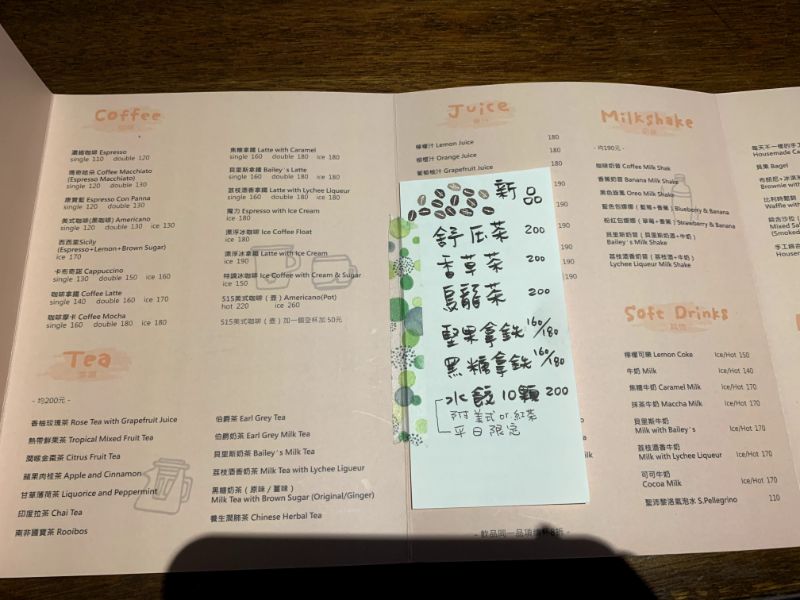 Coffee
咖啡
濃縮咖啡 Espresso
single 110 double 120
瑪奇哈朵 Coffee Macchiato
(Espresso Macchiato)
single 120 double 130
康寶藍 Espresso Con Panna
single 120 double 130
美式咖啡(黑咖啡) Americano
single 120 double 130 ice 130
西西里Sicily
(Espresso+Lemon+Brown Sugar)
ice 170
卡布奇諾 Cappuccino
single 130 double 150 ice 160
咖啡拿鐵 Coffee Latte
single 140 double 160 ice 170
咖啡摩卡 Coffee Mocha
single 160 double 180 ice 180
焦糖拿鐵 Latte with Caramel
single 160 double 180 ice 180
貝里斯拿鐵 Bailey´s Latte
single 160 double 180 ice 180
荔枝酒香拿鐵 Latte with Lychee Liqueur
single 160 double 180 ice 180
魔力 Espresso with Ice Cream
ice 180
漂浮冰咖啡 Ice Coffee Float
ice 180
漂浮冰拿鐵 Latte with Ice Cream
ice 190
特調冰咖啡 Ice Coffee with Cream & Sugar
ice 150
515美式咖啡（壺）Americano(Pot)
hot 220 ice 260
515美式咖啡（壺）加一個空杯加 50元
Tea
- 均200元 -
香柚玫瑰茶 Rose Tea with Grapefruit Juice
熱帶鮮果茶 Tropical Mixed Fruit Tea
潤喉金棗茶 Citrus Fruit Tea
蘋果肉桂茶 Apple and Cinnamon
甘草薄荷茶 Liquorice and Peppermint
印度拉茶 Chai Tea
南非國寶茶 Rooibos
伯爵茶 Earl Grey Tea
伯爵奶茶 Earl Grey Milk Tea
貝里斯奶茶 Bailey´s Milk Tea
荔枝酒香奶茶 Milk Tea with Lychee Ligueur
黑糖奶茶（原味 / 薑味）
Milk Tea with Brown Sugar (Original/Ginger)
養生潤肺茶 Chinese Herbal Tea
Juice
檸檬汁 Lemon Juice 180
柳橙汁 Orange Juice 180
葡萄柚汁 Grapefruit Juice 180
190
190
190
190
新品
舒压茶 200
香草茶 200
烏龍茶 200
堅果拿鉄 160/180
黑糖拿鉄 160/180
水餃10顆 200
附美式or紅茶
平日限定
Milkshake
奶昔
- 均190元 -
咖啡奶昔 Coffee Milk Shak
香蕉奶昔 Banana Milk Shake
黑色旋風 Oreo Milk Shake
藍色包娜娜（藍莓+香蕉）Blueberry & Banana
粉紅包娜娜（草莓+香蕉）Strawberry & Banana
貝里斯奶昔（貝里斯奶酒+牛奶）
Bailey´s Milk Shake
荔枝酒香奶昔（荔枝酒+牛奶）
Lychee Liqueur Milk Shake
Soft Drinks
檸檬可樂 Lemon Coke Ice/Hot 150
牛奶 Milk Ice/Hot 140
焦糖牛奶 Caramel Milk Ice/Hot 170
抹茶牛奶 Maccha Milk Ice/Hot 170
貝里斯牛奶
Milk with Bailey´s Ice/Hot 170
荔枝酒香牛奶
Milk with Lychee Liqueur Ice/Hot 170
可可牛奶
Cocoa Milk Ice/Hot 170
聖沛黎洛氣泡水 S.Pellegrino 110
每天不一樣的手工
Housemade Ca
貝果 Bagel
布朗尼+冰淇
Brownie with
比利時鬆餅
Waffle with
綜合沙拉
Mixed Sal
(Smoked
手工鍋
Housem